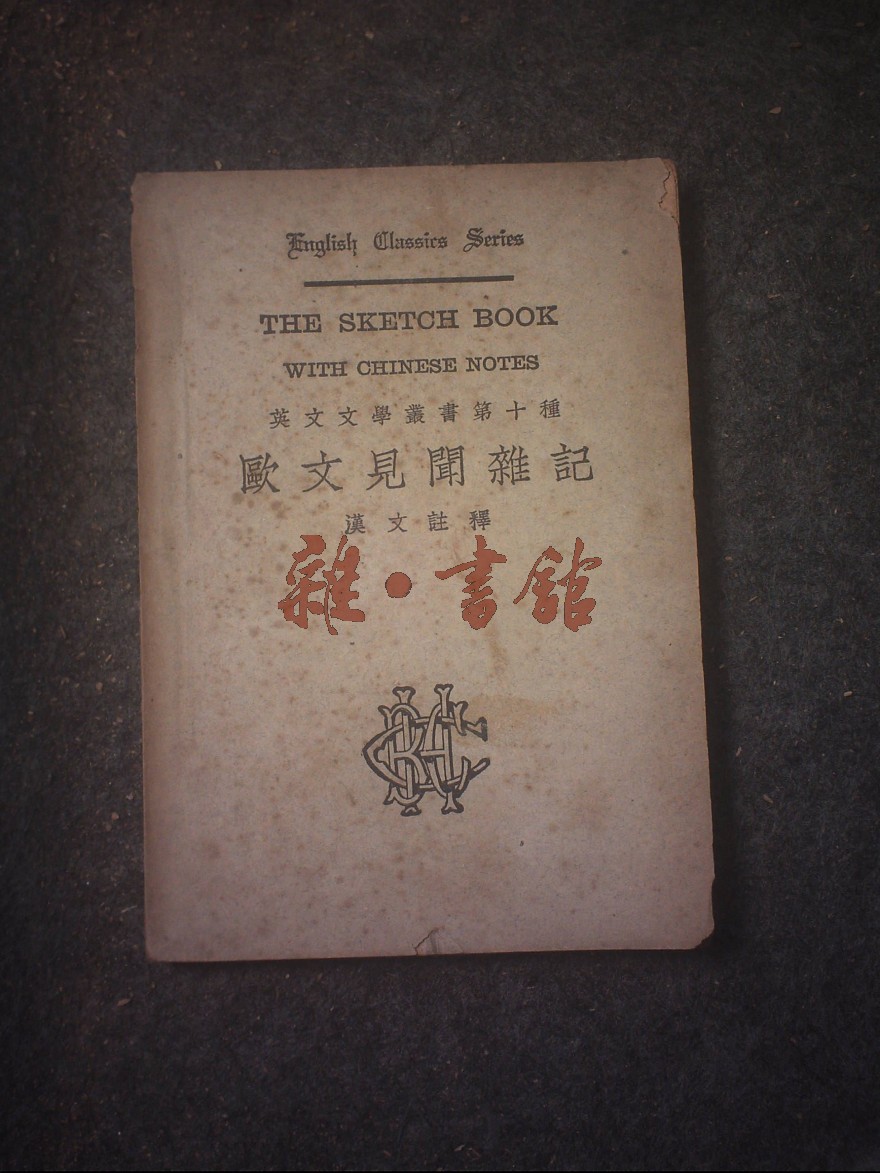 English Classics Series
THE SKETCH BOOK
WITH CHINESE NOTES
英文文學叢書第十種
歐文見聞雜記
漢文註釋
雜·書館